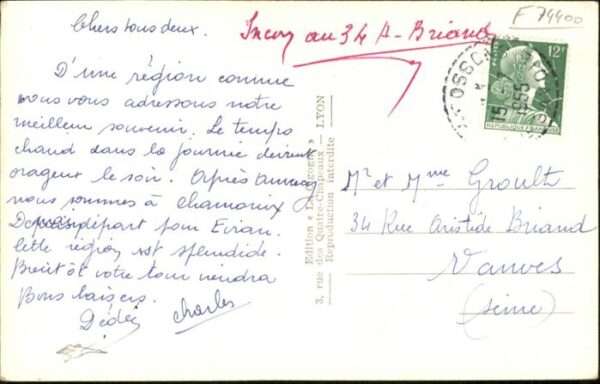 Chers tous deux.
D'une région connue
nous vous adressons notre
meilleur souvenir. Le temps
chaud dans la journée devient
orageux le soir. Après Annecy
nous sommes à Chamonix
départ pour Evian.
Cette région est splendide.
Bientôt votre tour viendra
Bons baisers.
Dédée Charles
Edition
3, rue des Quatre-Chapeaux - LYON
Reproduction interdite
Inconnu au 34 A-Briand
F 74400
12F
REPUBLIQUE FRANÇAISE
15
1955
Mr et Mme Groult
34 Rue Aristide Briand
Vanves
(Seine)